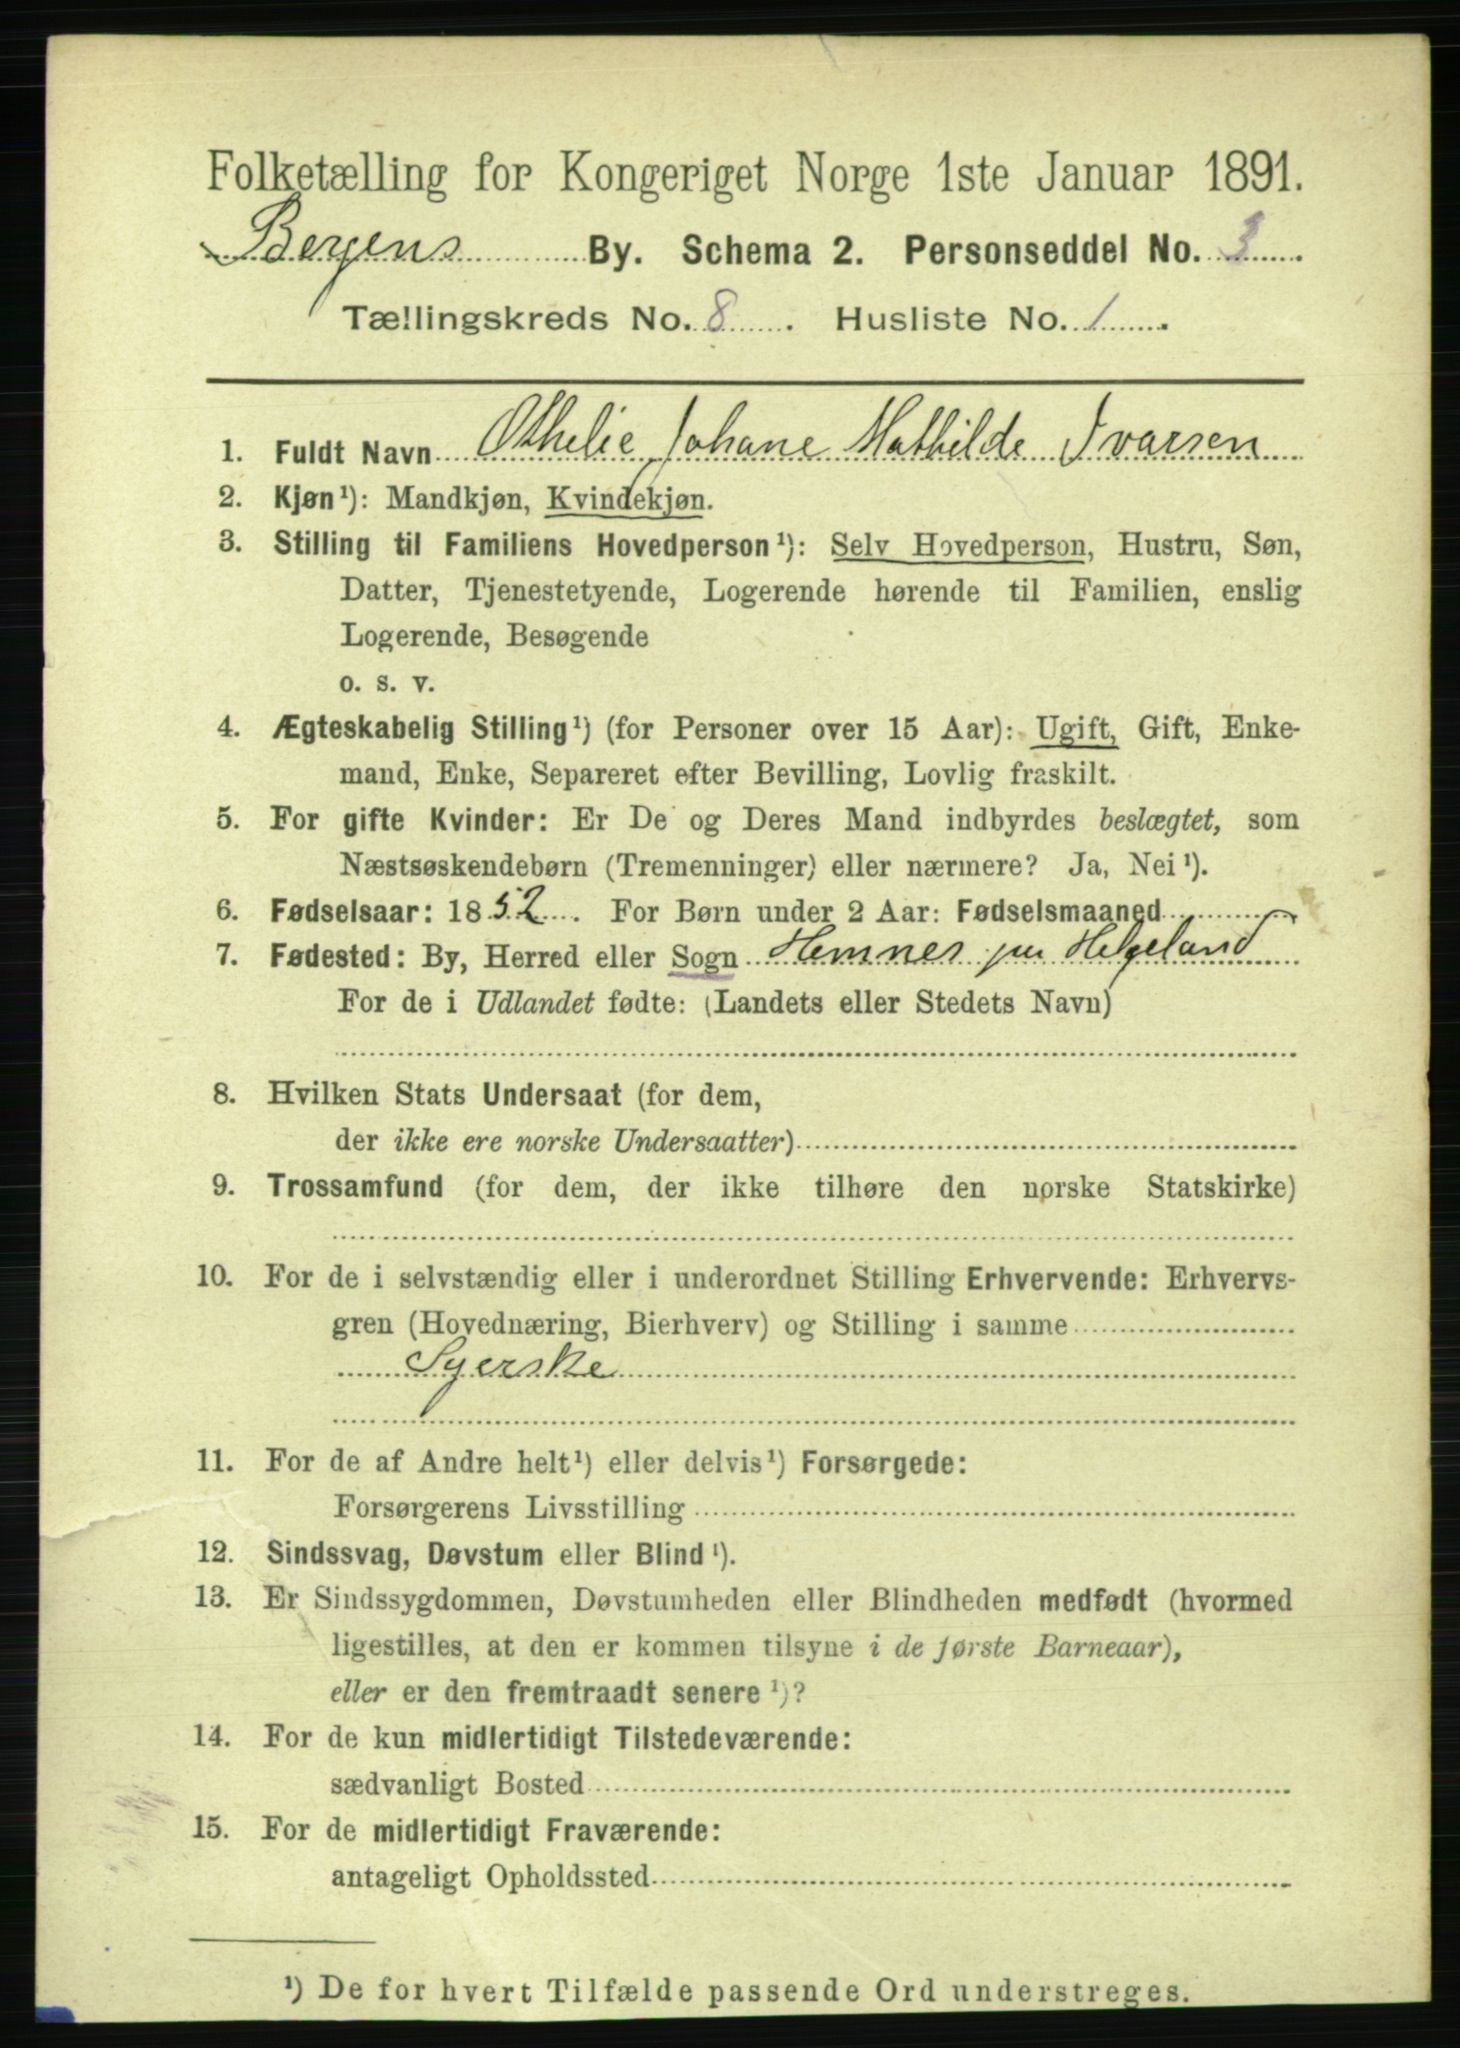 Folketælling for Kongeriget Norge 1ste Januar 1891.
Bergens By. Schema 2. Personseddel No. 3.
Tællingskreds No. 8. Husliste No. 1.
1. Fuldt Navn Othelie Johane Mathilde Ivarsen
2. Kjøn¹): Mandkjøn, Kvindekjøn.
3. Stilling til Familiens Hovedperson¹): Selv Hovedperson, Hustru, Søn,
Datter, Tjenestetyende, Logerende hørende til Familien, enslig
Logerende, Besøgende
o. s. v.
4. Ægteskabelig Stilling¹) (for Personer over 15 Aar): Ugift, Gift, Enke-
mand, Enke, Separeret efter Bevilling, Lovlig fraskilt.
5. For gifte Kvinder: Er De og Deres Mand indbyrdes beslægtet, som
Næstsøskendebørn (Tremenninger) eller nærmere? Ja, Nei¹).
6. Fødselsaar: 1852. For Børn under 2 Aar: Fødselsmaaned
7. Fødested: By, Herred eller Sogn Hemnes pr Helgeland
For de i Udlandet fødte: (Landets eller Stedets Navn)
8. Hvilken Stats Undersaat (for dem,
der ikke ere norske Undersaatter)
9. Trossamfund (for dem, der ikke tilhøre den norske Statskirke)
10. For de i selvstændig eller i underordnet Stilling Erhvervende: Erhvervs-
gren (Hovednæring, Bierhverv) og Stilling i samme
Syerske
11. For de af Andre helt¹) eller delvis¹) Forsørgede:
Forsørgerens Livsstilling
12. Sindssvag, Døvstum eller Blind¹).
13. Er Sindssygdommen, Døvstumheden eller Blindheden medfødt (hvormed
ligestilles, at den er kommen tilsyne i de første Barneaar),
eller er den fremtraadt senere¹)?
14. For de kun midlertidigt Tilstedeværende:
sædvanligt Bosted
15. For de midlertidigt Fraværende:
antageligt Opholdssted
¹) De for hvert Tilfælde passende Ord understreges.